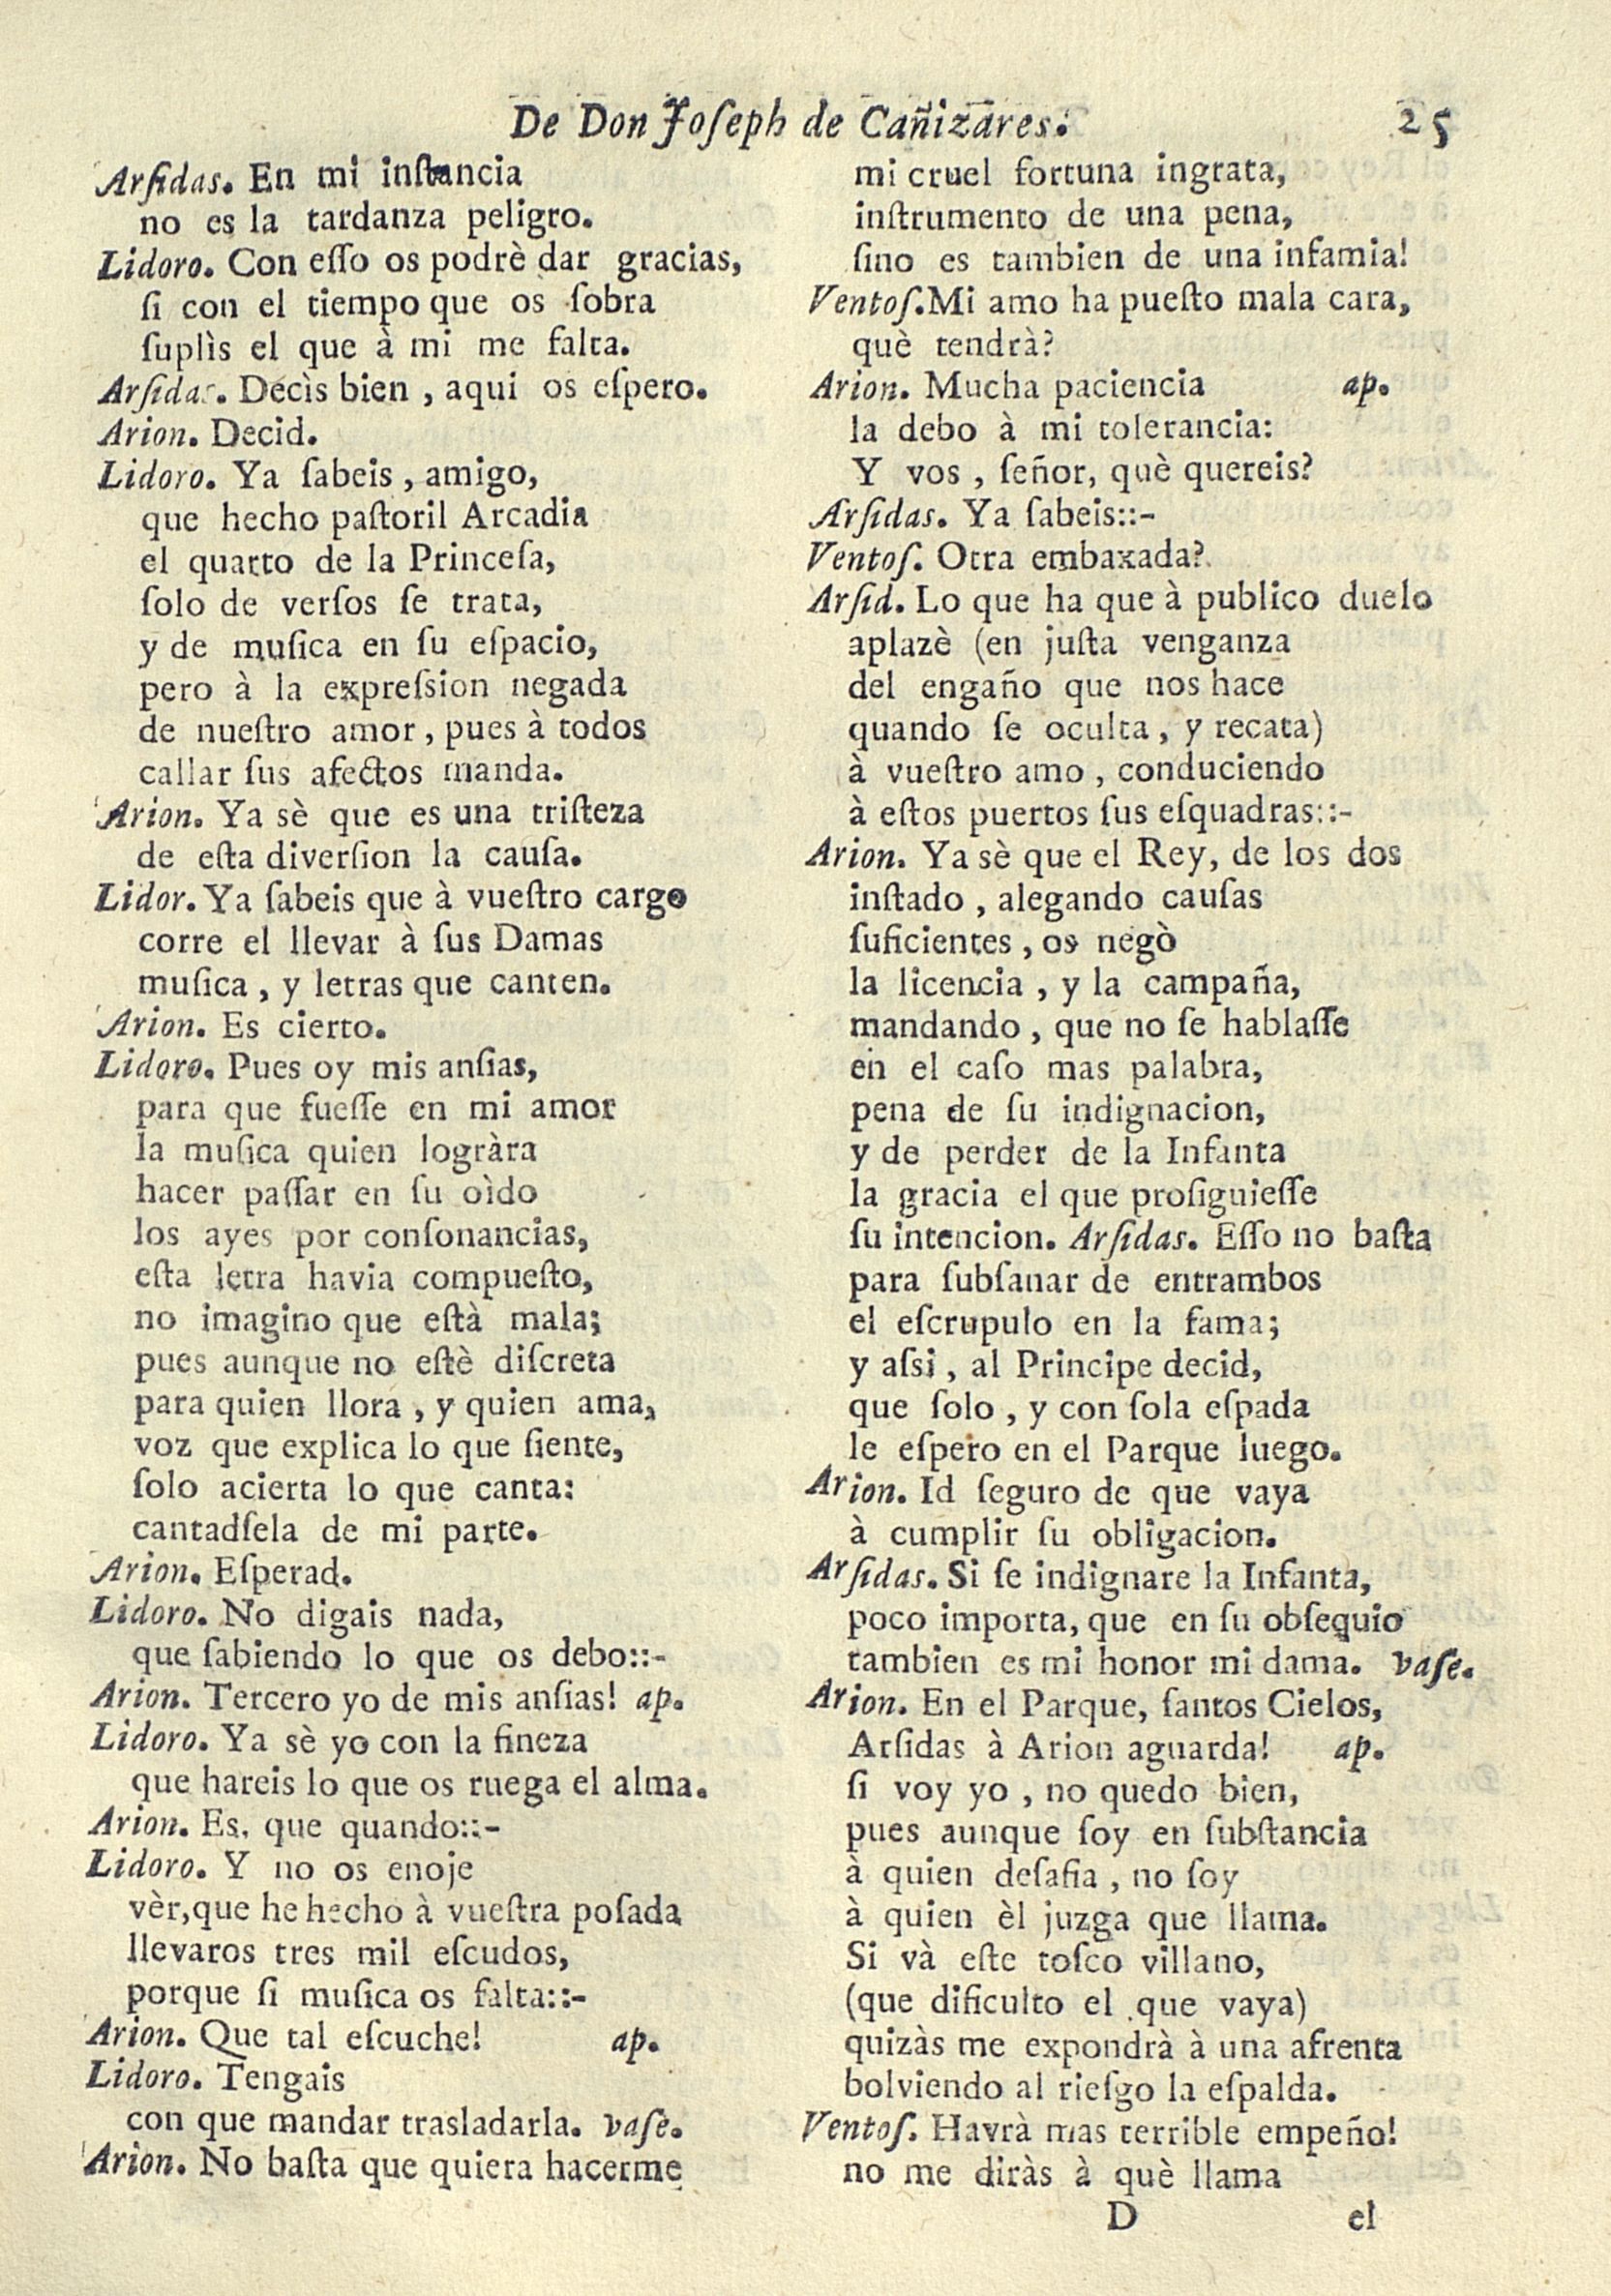 De Don Joſeph de Cañizares. 25
Arſidas. En mi inſtancia
no es la tardanza peligro.
Lidoro. Con eſſo os podrè dar gracias,
ſi con el tiempo que os ſobra
ſuplìs el que à mi me falta.
Arſidas. Decìs bien, aqui os eſpero.
Arion. Decid.
Lidoro. Ya ſabeis, amigo,
que hecho paſtoril Arcadia
el quarto de la Princeſa,
ſolo de verſos ſe trata,
y de muſica en ſu eſpacio,
pero à la expreſsion negada
de nueſtro amor, pues à todos
callar ſus afectos manda.
Arion. Ya sè que es una triſteza
de eſta diverſion la cauſa.
Lidor. Ya ſabeis que à vueſtro cargo
corre el llevar à ſus Damas
muſica, y letras que canten.
Arion. Es cierto.
Lidoro. Pues oy mis anſias,
para que fueſſe en mi amor
la muſica quien logràra
hacer paſſar en ſu oìdo
los ayes por conſonancias,
eſta letra havia compueſto,
no imagino que eſtà mala;
pues aunque no eſtè diſcreta
para quien llora, y quien ama,
voz que explica lo que ſiente,
ſolo acierta lo que canta:
cantadſela de mi parte.
Arion. Eſperad.
Lidoro. No digais nada,
que ſabiendo lo que os debo::-
Arion. Tercero yo de mis anſias! ap.
Lidoro. Ya sè yo con la fineza
que hareis lo que os ruega el alma.
Arion. Es, que quando::-
Lidoro. Y no os enoje
vèr, que he hecho à vueſtra poſada
llevaros tres mil eſcudos,
porque ſi muſica os falta::-
Arion. Que tal eſcuche! ap.
Lidoro. Tengais
con que mandar trasladarla. vaſe.
Arion. No baſta que quiera hacerme
mi cruel fortuna ingrata,
inſtrumento de una pena,
ſino es tambien de una infamia!
Ventoſ. Mi amo ha pueſto mala cara,
què tendrà?
Arion. Mucha paciencia ap.
la debo à mi tolerancia:
Y vos, ſeñor, què quereis?
Arſidas. Ya ſabeis::-
Ventoſ. Otra embaxada?
Arſid. Lo que ha que à publico duelo
aplazè (en juſta venganza
del engaño que nos hace
quando ſe oculta, y recata)
à vueſtro amo, conduciendo
à eſtos puertos ſus eſquadras::-
Arion. Ya sè que el Rey, de los dos
inſtado, alegando cauſas
ſuficientes, os negò
la licencia, y la campaña,
mandando, que no ſe hablaſſe
en el caſo mas palabra,
pena de ſu indignacion,
y de perder de la Infanta
la gracia el que proſiguieſſe
ſu intencion. Arſidas. Eſſo no baſta
para ſubſanar de entrambos
el eſcrupulo en la fama;
y aſsi, al Principe decid,
que ſolo, y con ſola eſpada
le eſpero en el Parque luego.
Arion. Id ſeguro de que vaya
à cumplir ſu obligacion.
Arſidas. Si ſe indignare la Infanta,
poco importa, que en ſu obſequio
tambien es mi honor mi dama. vaſe.
Arion. En el Parque, ſantos Cielos,
Arſidas à Arion aguarda! ap.
ſi voy yo, no quedo bien,
pues aunque ſoy en ſubſtancia
à quien deſafia, no ſoy
à quien èl juzga que llama.
Si và eſte toſco villano,
(que dificulto el que vaya)
quizàs me expondrà à una afrenta
bolviendo al rieſgo la eſpalda.
Ventoſ. Havrà mas terrible empeño!
no me diràs à què llama
D el